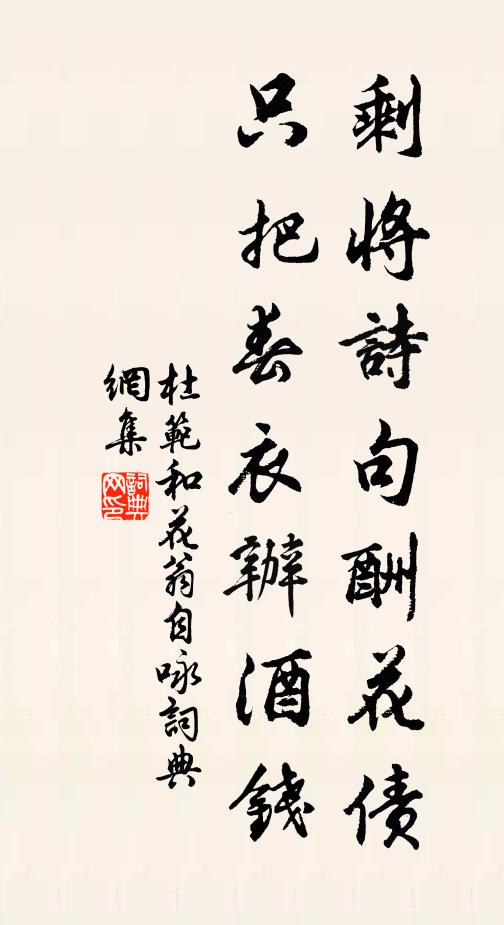 剩將詩句酬花債
只把春衣辦酒錢
杜範和花翁自咏詞典
網集
詞典
网印